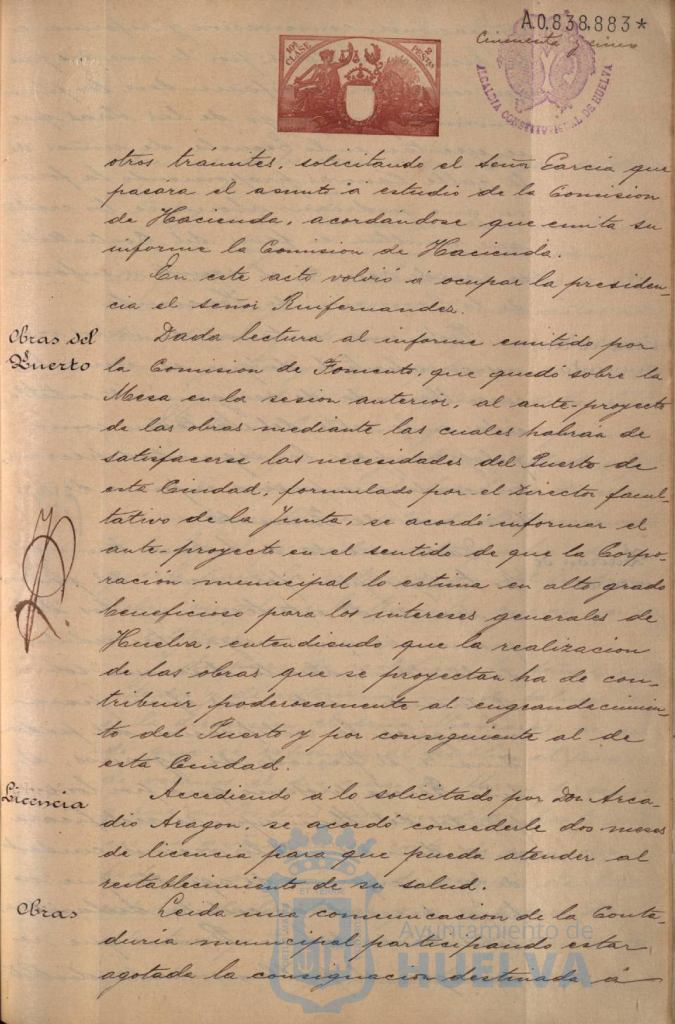 A.0.838,883*
Cincuenta y cinco
10ª CLASE
2 PESETAS
ALCALDIA CONSTITUCIONAL DE HUELVA
otros trámites, solicitando el señor García que
pasára el asunto á estudio de la Comision
de Hacienda, acordándose que emita su
informe la Comision de Hacienda.
En este acto volvió á ocupar la presiden-
cia el señor Ruifernandez.
Obras del
Puerto
Dada lectura al informe emitido por
la Comision de Fomento, que quedó sobre la
Mesa en la sesion anterior, al ante-proyecto
de las obras mediante las cuales habrán de
satisfacerse las necesidades del Puerto de
esta Ciudad, formulado por el Director facul-
tativo de la Junta, se acordó informar el
ante-proyecto en el sentido de que la Corpo-
ración municipal lo estima en alto grado
beneficioso para los intereses generales de
Huelva, entendiendo que la realizacion
de las obras que se proyectan ha de con-
tribuir poderosamente al engrandecimien-
to del Puerto y por consiguiente al de
esta Ciudad.
Licencia
Accediendo á lo solicitado por Don Arca-
dio Aragon, se acordó concederle dos meses
de licencia para que pueda atender al
restablecimiento de su salud.
Obras
Leida una comunicacion de la Conta-
duría municipal participando estar
agotada la consignacion destinada á
Ayuntamiento de
HUELVA